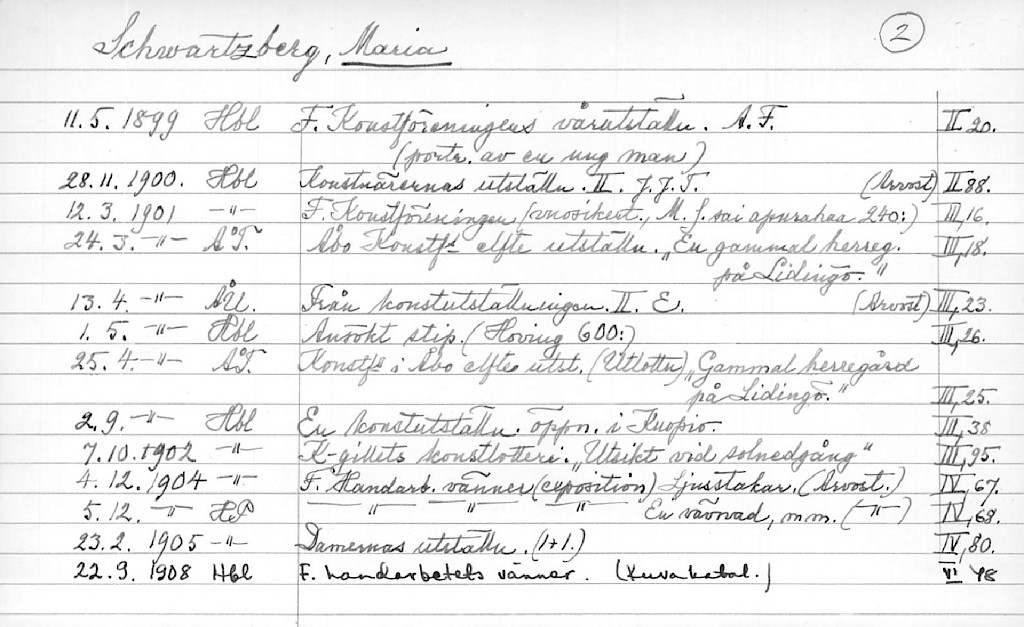 Schwartzberg, Maria 2
11.5. 1899 Hbl F. Konstföreningens vårutställn. A.F. II 20.
(portr. av en ung man)
28.11. 1900. Hbl Konstnärernas utställn. II. J.J.T. (Arvost) II 88.
12.3. 1901 -"- F. Konstföreningen (vuosikert., M.S. sai apurahaa 240:) III, 16.
24.3. -"- ÅT. Åbo Konstf:s elfte utställn. „En gammal herreg. III, 18.
på Lidingö."
13.4. -"- ÅU. Från konstutställningen. II. E. (Arvost) III, 23.
1.5. -"- Hbl Ansökt stip. (Hoving 600:) III, 26.
25.4. -"- ÅT. Konstf:s i Åbo elfte utst. (Utlottn) „Gammal herregård
på Lidingö." III, 25.
2.9. -"- Hbl En konstutställn. öppn. i Kuopio. III, 38
7.10.1902 -"- K-gillets konstlotteri. „Utsikt vid solnedgång" III, 95.
4.12.1904 -"- F. Handarb. vänner (exposition) Ljusstakar. (Arvost.) IV, 67.
5.12. -"- HP -"- -"- -"- En vävnad, m.m. (-"-) IV, 68.
23.2. 1905 -"- Damernas utställn. (1+1.) IV, 80.
22.9. 1908 Hbl F. handarbetets vänner. (Kuvakatal.) VI 48